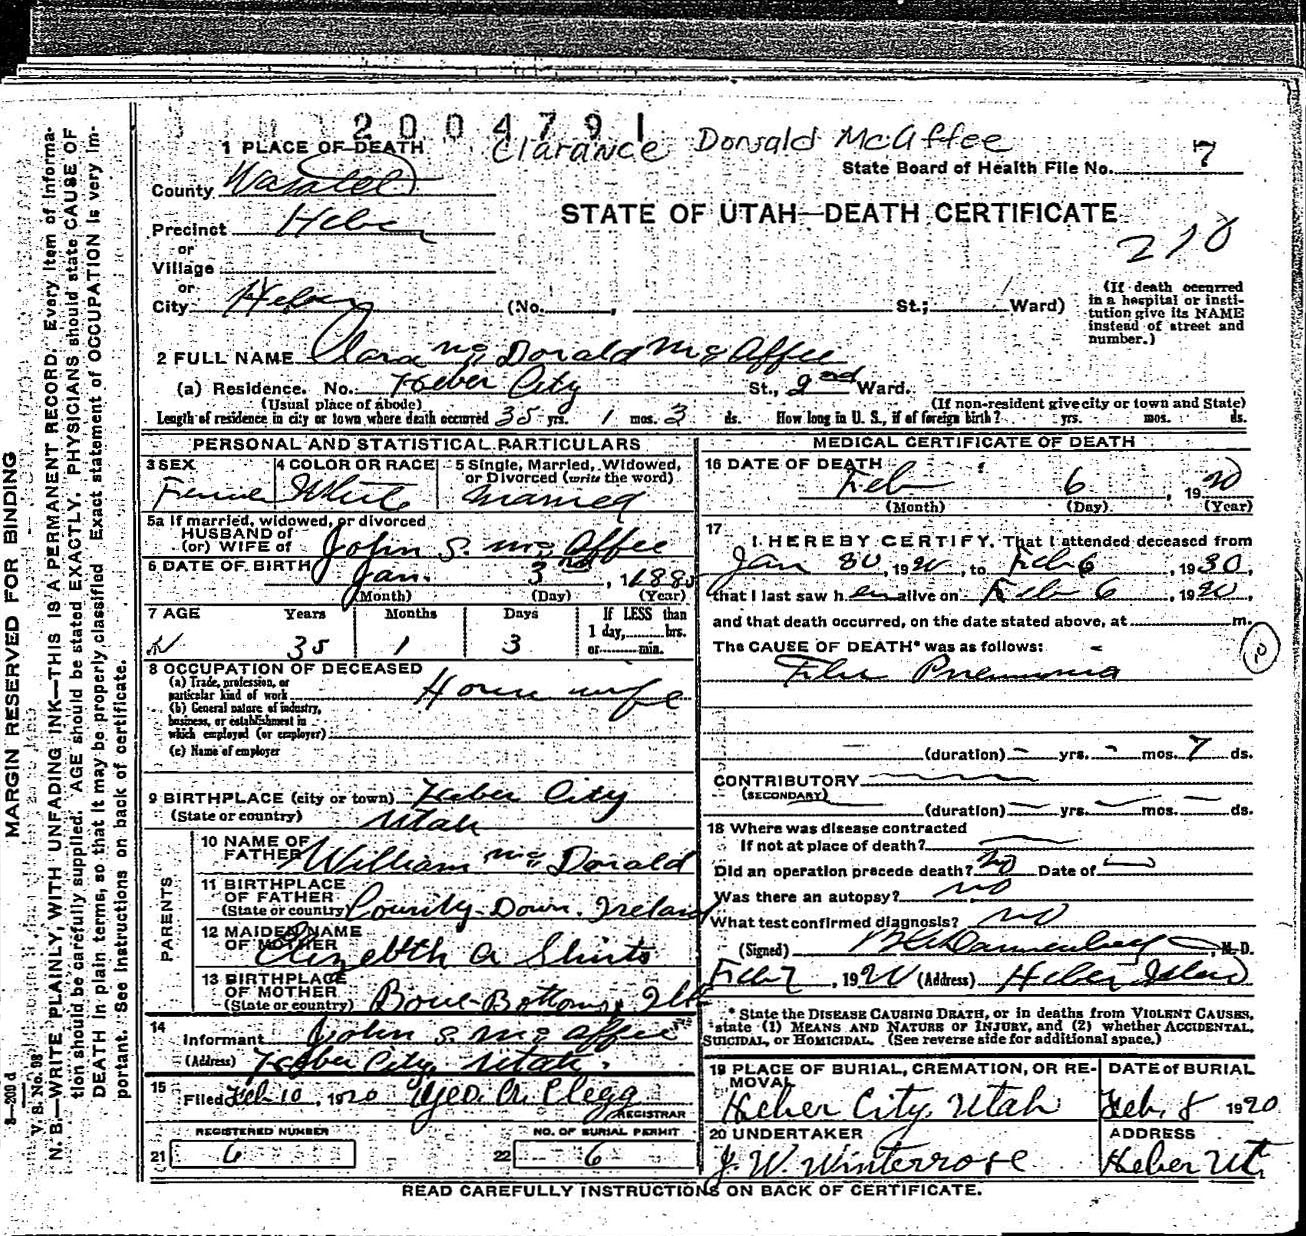 2004791
Clarance Donald McAffee
1 PLACE OF DEATH
State Board of Health File No. 7
County Wasatch
STATE OF UTAH—DEATH CERTIFICATE
Precinct Heber
210
or
Village
or
City Heber (No. , St.; Ward)
(If death occurred in a hospital or institution give its NAME instead of street and number.)
2 FULL NAME Clara Mc Donald Mc Affee
(a) Residence. No. Heber City St., 2nd Ward.
(Usual place of abode) (If non-resident give city or town and State)
Length of residence in city or town where death occurred 35 yrs. 1 mos. 3 ds. How long in U. S., if of foreign birth? yrs. mos. ds.
PERSONAL AND STATISTICAL PARTICULARS
3 SEX 4 COLOR OR RACE 5 Single, Married, Widowed, or Divorced (write the word)
White Married
5a If married, widowed, or divorced
HUSBAND of
(or) WIFE of John S. Mc Affee
6 DATE OF BIRTH Jan. 3rd, 1885
(Month) (Day) (Year)
7 AGE Years Months Days If LESS than
1 day, hrs.
35 1 3 or min.
8 OCCUPATION OF DECEASED
(a) Trade, profession, or
particular kind of work House wife
(b) General nature of industry,
business, or establishment in
which employed (or employer)
(c) Name of employer
9 BIRTHPLACE (city or town) Heber City
(State or country) Utah
PARENTS
10 NAME OF
FATHER William Mc Donald
11 BIRTHPLACE
OF FATHER
(State or country) County-Down. Ireland
12 MAIDEN NAME
OF MOTHER Elizebth A Shirts
13 BIRTHPLACE
OF MOTHER
(State or country)
14
Informant John S. Mc Affee
(Address) Heber City, Utah.
15
Filed Feb 10, 1920 Geo. A. Clegg
REGISTRAR
REGISTERED NUMBER NO. OF BURIAL PERMIT
21 6 22 6
MEDICAL CERTIFICATE OF DEATH
16 DATE OF DEATH
Feb 6, 1920
(Month) (Day) (Year)
17
I HEREBY CERTIFY, That I attended deceased from
Jan 30, 1920, to Feb 6, 1920,
that I last saw her alive on Feb 6, 1920,
and that death occurred, on the date stated above, at m.
The CAUSE OF DEATH* was as follows:
Pneumonia
(duration) yrs. mos. 7 ds.
CONTRIBUTORY
(SECONDARY)
(duration) yrs. mos. ds.
18 Where was disease contracted
If not at place of death?
Did an operation precede death? No Date of
Was there an autopsy? no
What test confirmed diagnosis? no
(Signed) M. D.
Feb 7, 1920 (Address) Heber
* State the DISEASE CAUSING DEATH, or in deaths from VIOLENT CAUSES,
state (1) MEANS AND NATURE OF INJURY, and (2) whether ACCIDENTAL,
SUICIDAL, or HOMICIDAL. (See reverse side for additional space.)
19 PLACE OF BURIAL, CREMATION, OR REMOVAL DATE of BURIAL
Heber City, Utah Feb. 8 1920
20 UNDERTAKER ADDRESS
J. W. Winterrose Heber Ut.
READ CAREFULLY INSTRUCTIONS ON BACK OF CERTIFICATE.
MARGIN RESERVED FOR BINDING
N. B.—WRITE PLAINLY, WITH UNFADING INK—THIS IS A PERMANENT RECORD. Every item of information should be carefully supplied. AGE should be stated EXACTLY. PHYSICIANS should state CAUSE OF DEATH in plain terms, so that it may be properly classified. Exact statement of OCCUPATION is very important. See instructions on back of certificate.
V. S. No. 98